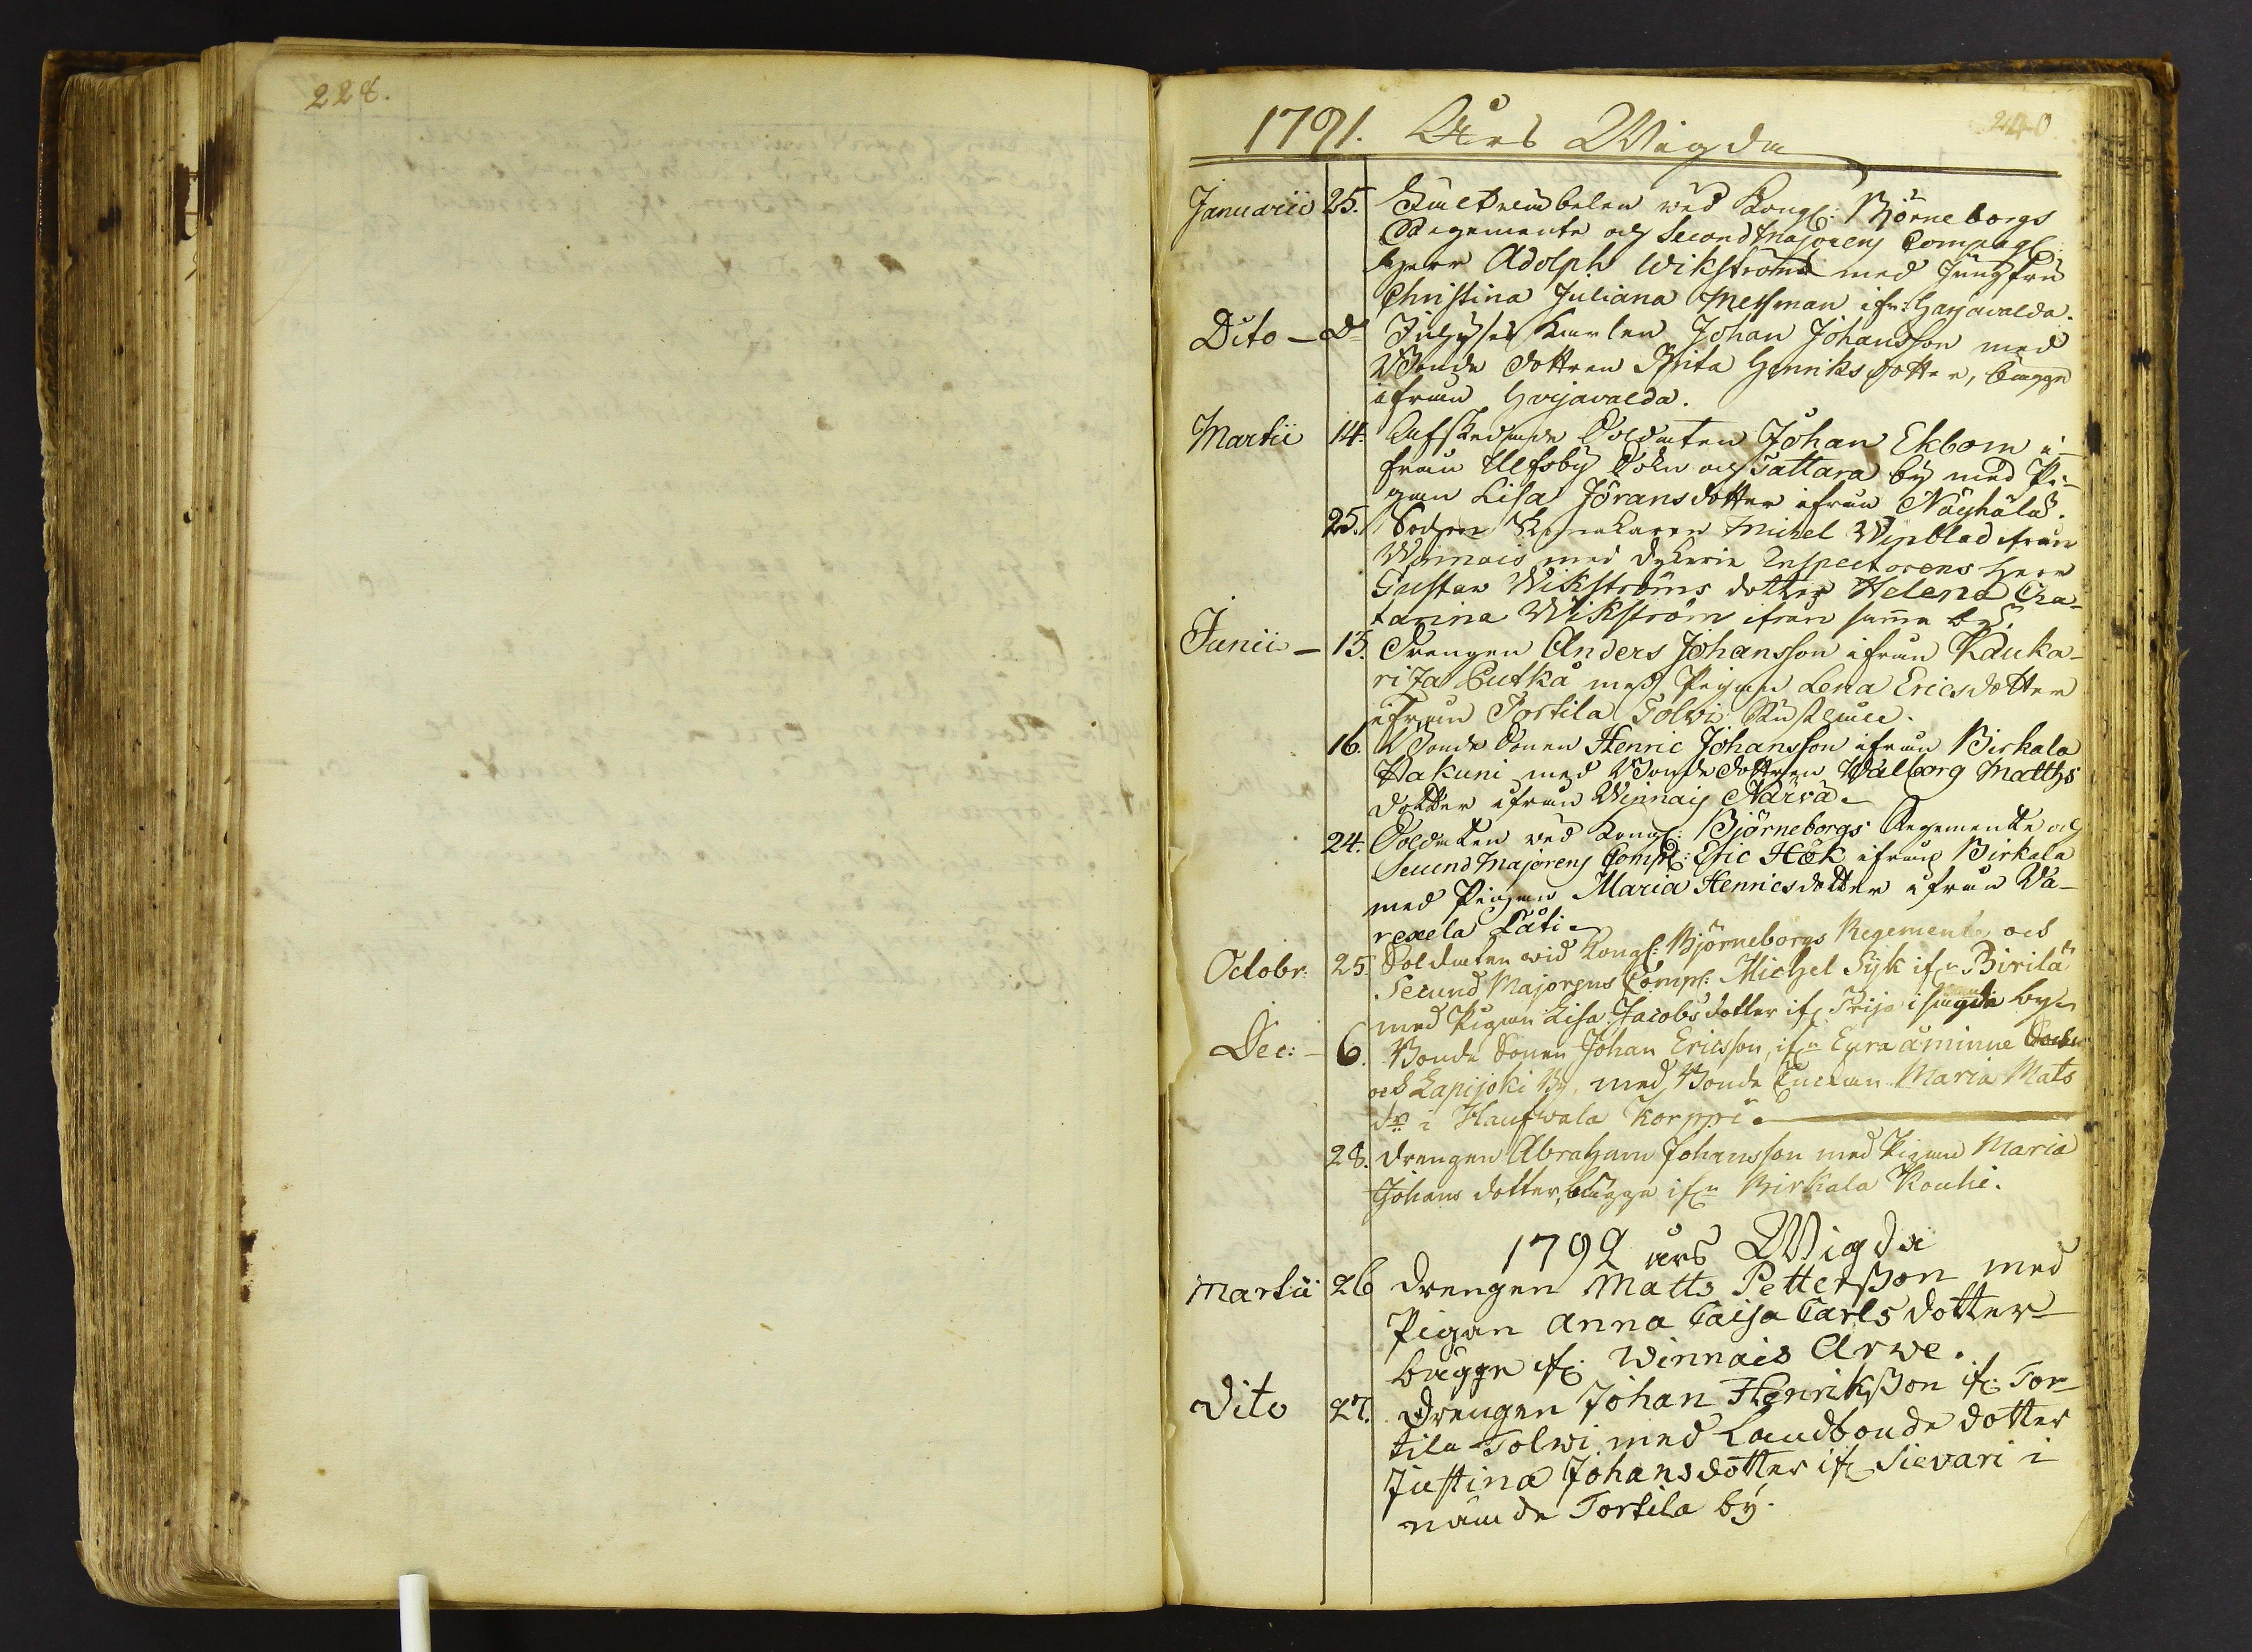 228.
240
1791. Års Wigda
Januarii 25. wid Kongl: Björneborgs
Regemente och Second Majorens Compagl:
Herr Adolph Wikström med Jungfru
Christina Juliana Messman ifr: Harjavalda.
Dito — Do Inhyses Karlen Johan Johansson med
Bonde Dottren Brita Henriksdotter, bägge
ifrån Harjavalda.
Martii 14. Afskedade Soldaten Johan Ekbom i-
från Ulfsby Sokn och Tattara by med Pi-
gan Lisa Jöransdotter ifrån Näyhälä.
25. Sockne Skräddaren Michel Winblad ifrån
Winnais med Inspectorens Herr
Gustav Wikströms dotter Helena Cha-
tarina Wikström ifrån samma by.
Junii — 13. Drengen Anders Johansson ifrån Kauka-
ritza Putka med Pigan Lena Ericsdotter
ifrån Tortila Tolwi
16. Bonde Sonen Henric Johansson ifrån Birkala
Hakuni med Bonde dottren Walborg Matths
dotter ifrån Winnais Närvä.
24. Soldaten wid Kongl: Björneborgs Regemente och
Secund Majorens Compl: Eric Hök ifrån Birkala
med Pigan Maria Henricsdotter ifrån Va-
reaela Läti.
Octobr: 25. Soldaten wid Kongl: Björneborgs Regemente och
Secund Majorens Compl: Michel Syk ifn Pirilä
med Pigan Lisa Jacobsdotter ifr: Prija i by.
Dec: — 6. Bonde Sonen Johan Ericsson, ifn Eura åminne Sockn
och Lapijoki By, med Bonde Enckan Maria Mats
dr i Haufwala Korppi.
28. Drengen Abraham Johansson med Pigan Maria
Johans dotter, bägge ifn Birkala Kouhi.
1792 års Wigda
Martii 26 Drengen Matts Petterßon med
Pigan Anna Caisa Carls dotter
bägge ifr: Winnais Arwe.
Dito 27. Drengen Johan Henrikßon ifr: Tor-
tila Tolwi med Landbonde dotter
Justina Johansdotter ifr: Sievari i
nämde Tortila by.